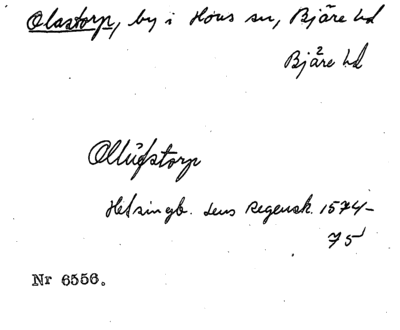 Olastorp, by i Hovs sn, Bjäre hd
Bjäre hd
Ollufstorp
Helsingb. lens Regensk. 1574-
75
Nr 6556.